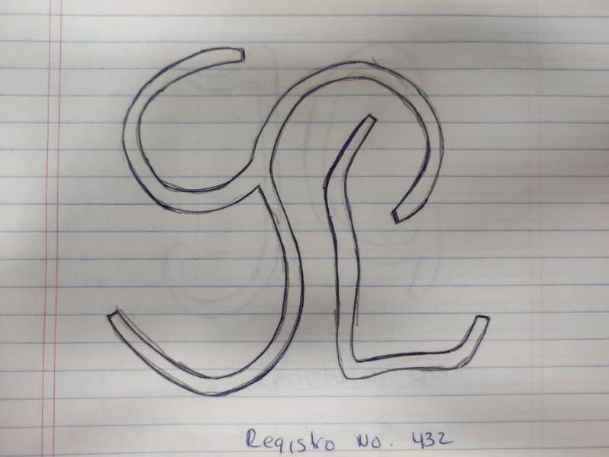 Registro No. 432